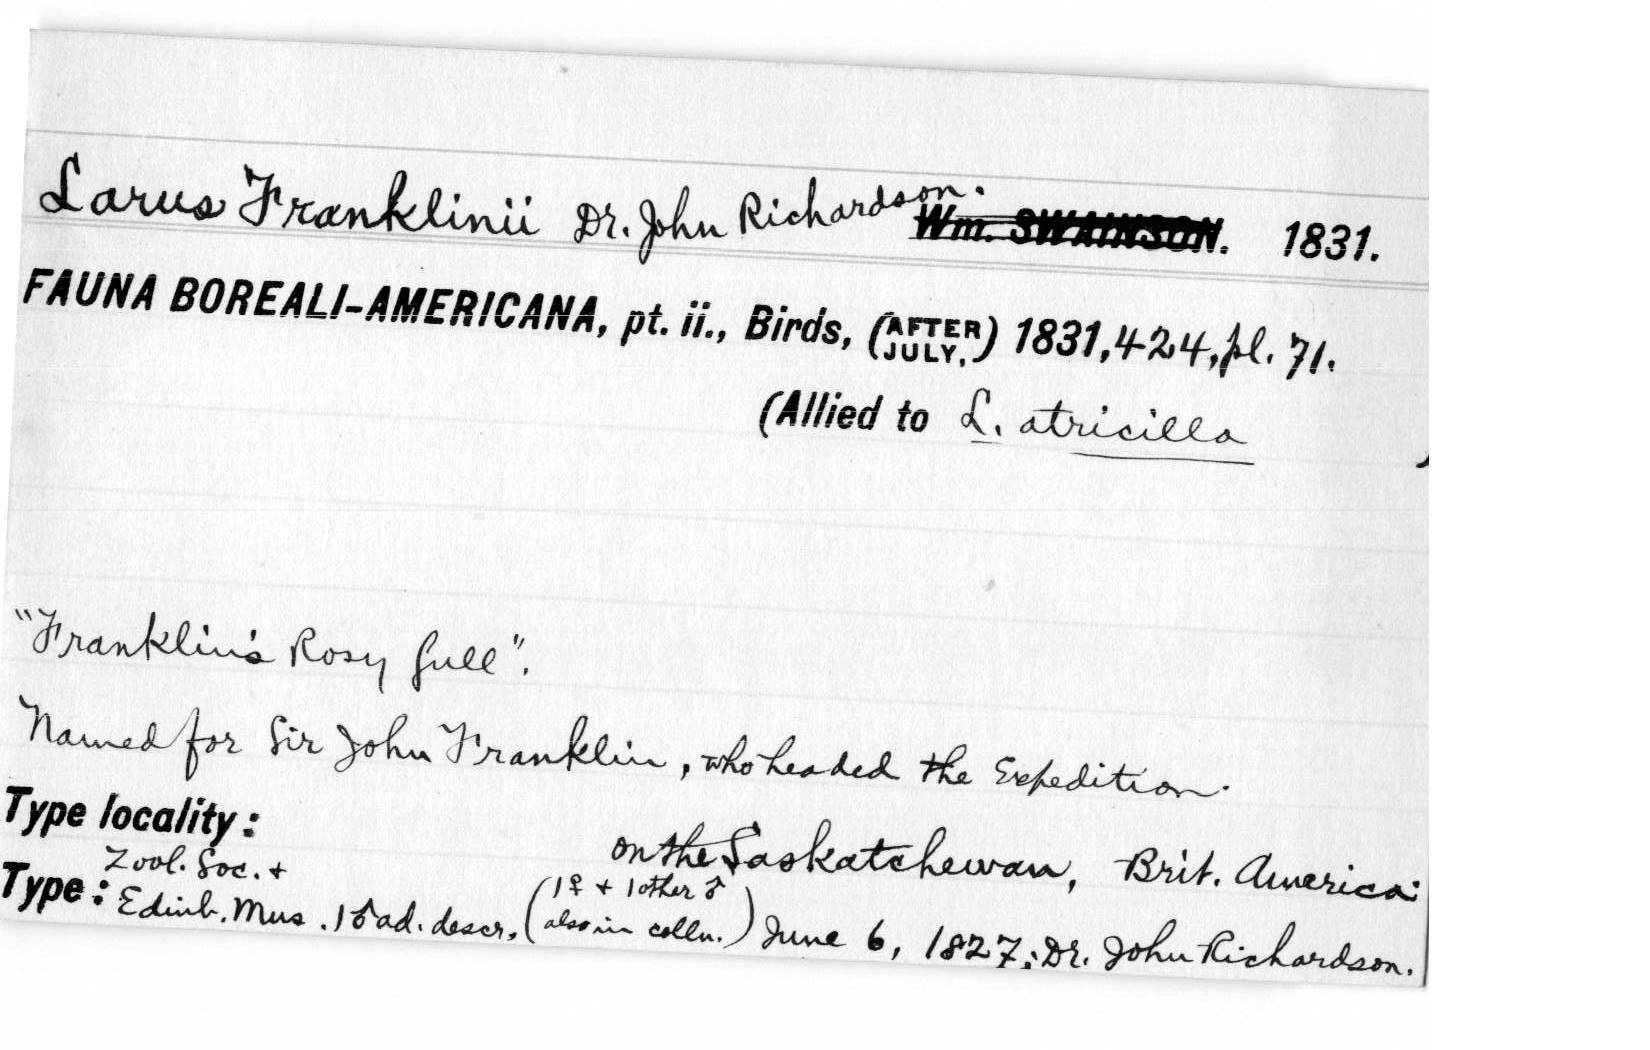 Larus Franklinii Dr. John Richardson. Wm. SWAINSON. 1831.
FAUNA BOREALI-AMERICANA, pt. ii., Birds, (AFTER JULY,) 1831, 424, pl. 71.
(Allied to L. atricilla )
"Franklin's Rosy Gull".
Named for Sir John Franklin, who headed the Expedition.
Type locality: on the Saskatchewan, Brit. America.
Zool. Soc. +
Type: Edinb. Mus. 1♂ad. descr. (1♀ + 1 other ♂ also in colln.) June 6, 1827; Dr. John Richardson.